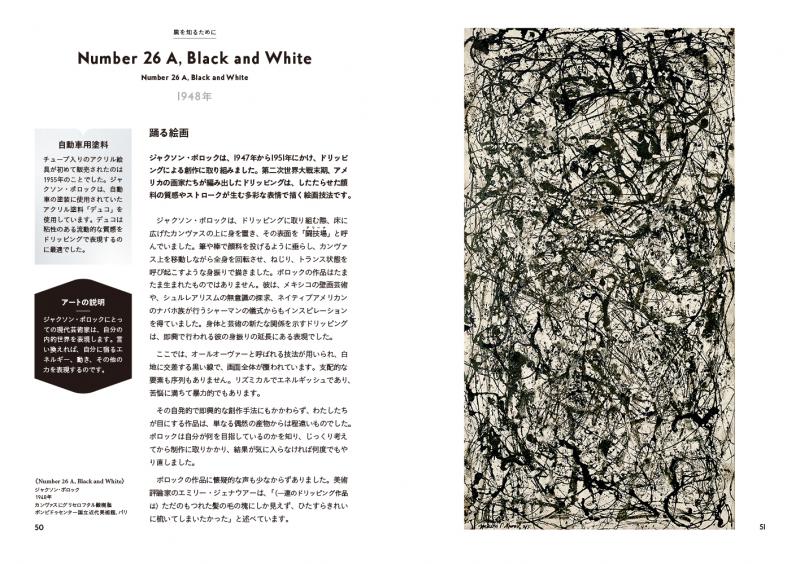 風を知るために
Number 26 A, Black and White
Number 26 A, Black and White
1948年
自動車用塗料
チューブ入りのアクリル絵
具が初めて販売されたのは
1955年のことでした。ジャ
クソン・ポロックは、自動
車の塗装に使用されていた
アクリル塗料「デュコ」を
使用しています。デュコは
粘性のある流動的な質感を
ドリッピングで表現するの
に最適でした。
アートの説明
ジャクソン・ポロックにとっ
ての現代芸術家は、自分の
内的世界を表現します。言
い換えれば、自分に宿るエ
ネルギー、動き、その他の
力を表現するのです。
《Number 26 A, Black and White》
ジャクソン・ポロック
1948年
カンヴァスにグリセロフタル酸樹脂
ポンピドゥセンター国立近代美術館、パリ
50
踊る絵画
ジャクソン・ポロックは、1947年から1951年にかけ、ドリッピ
ングによる創作に取り組みました。第二次世界大戦末期、ア
メリカの画家たちが編み出したドリッピングは、したたらせた顔
料の質感やストロークが生む多彩な表情で描く絵画技法です。
ジャクソン・ポロックは、ドリッピングに取り組む際、床に
広げたカンヴァスの上に身を置き、その表面を「闘技場」と呼
んでいました。筆や棒で顔料を投げるように垂らし、カンヴァ
ス上を移動しながら全身を回転させ、ねじり、トランス状態を
呼び起こすような身振りで描きました。ポロックの作品はたま
たま生まれたものではありません。彼は、メキシコの壁画芸術
や、シュルレアリスムの無意識の探求、ネイティブアメリカン
のナバホ族が行うシャーマンの儀式からもインスピレーション
を得ていました。身体と芸術の新たな関係を示すドリッピング
は、即興で行われる彼の身振りの延長にある表現でした。
ここでは、オールオーヴァーと呼ばれる技法が用いられ、白
地に交差する黒い線で、画面全体が覆われています。支配的な
要素も序列もありません。リズミカルでエネルギッシュであり、
苦悩に満ちて暴力的でもあります。
その自発的で即興的な創作手法にもかかわらず、わたしたち
が目にする作品は、単なる偶然の産物からは程遠いものでした。
ポロックは自分が何を目指しているのかを知り、じっくり考え
てから制作に取りかかり、結果が気に入らなければ何度でもや
り直しました。
ポロックの作品に懐疑的な声も少なからずありました。美術
評論家のエミリー・ジェナウアーは、「（一連のドリッピング作品
は）ただのもつれた髪の毛の塊にしか見えず、ひたすらきれい
に梳いてしまいたかった」と述べています。
51